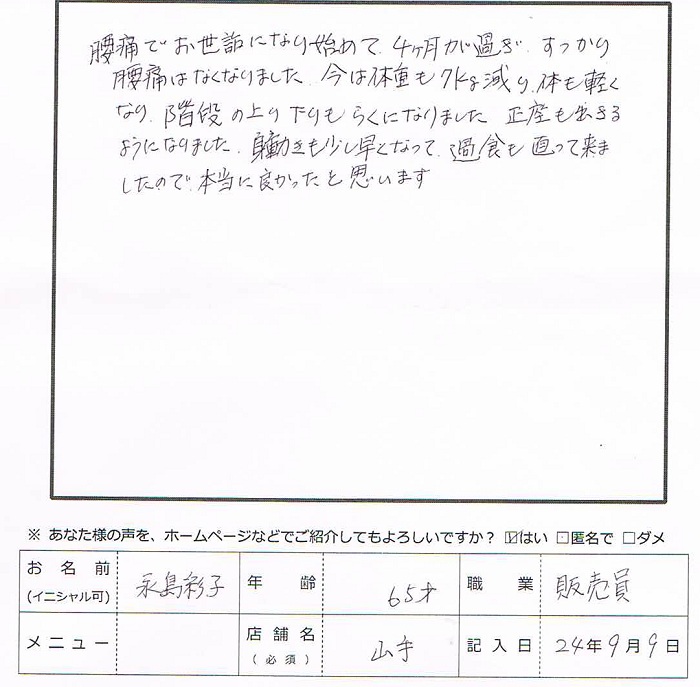 腰痛でお世話になり始めて、4ヶ月が過ぎ、すっかり
腰痛はなくなりました。今は体重も7kg減り、体も軽く
なり、階段の上り下りもらくになりました 正座も出きる
ようになりました。身動きも少し早くなって、過食も直って来ま
したので、本当に良かったと思います
※ あなた様の声を、ホームページなどでご紹介してもよろしいですか? ☑はい □匿名で □ダメ
お名前 (イニシャル可) 永島彩子 年齢 65才 職業 販売員
メニュー 店舗名 (必須) 山手 記入日 24年9月9日